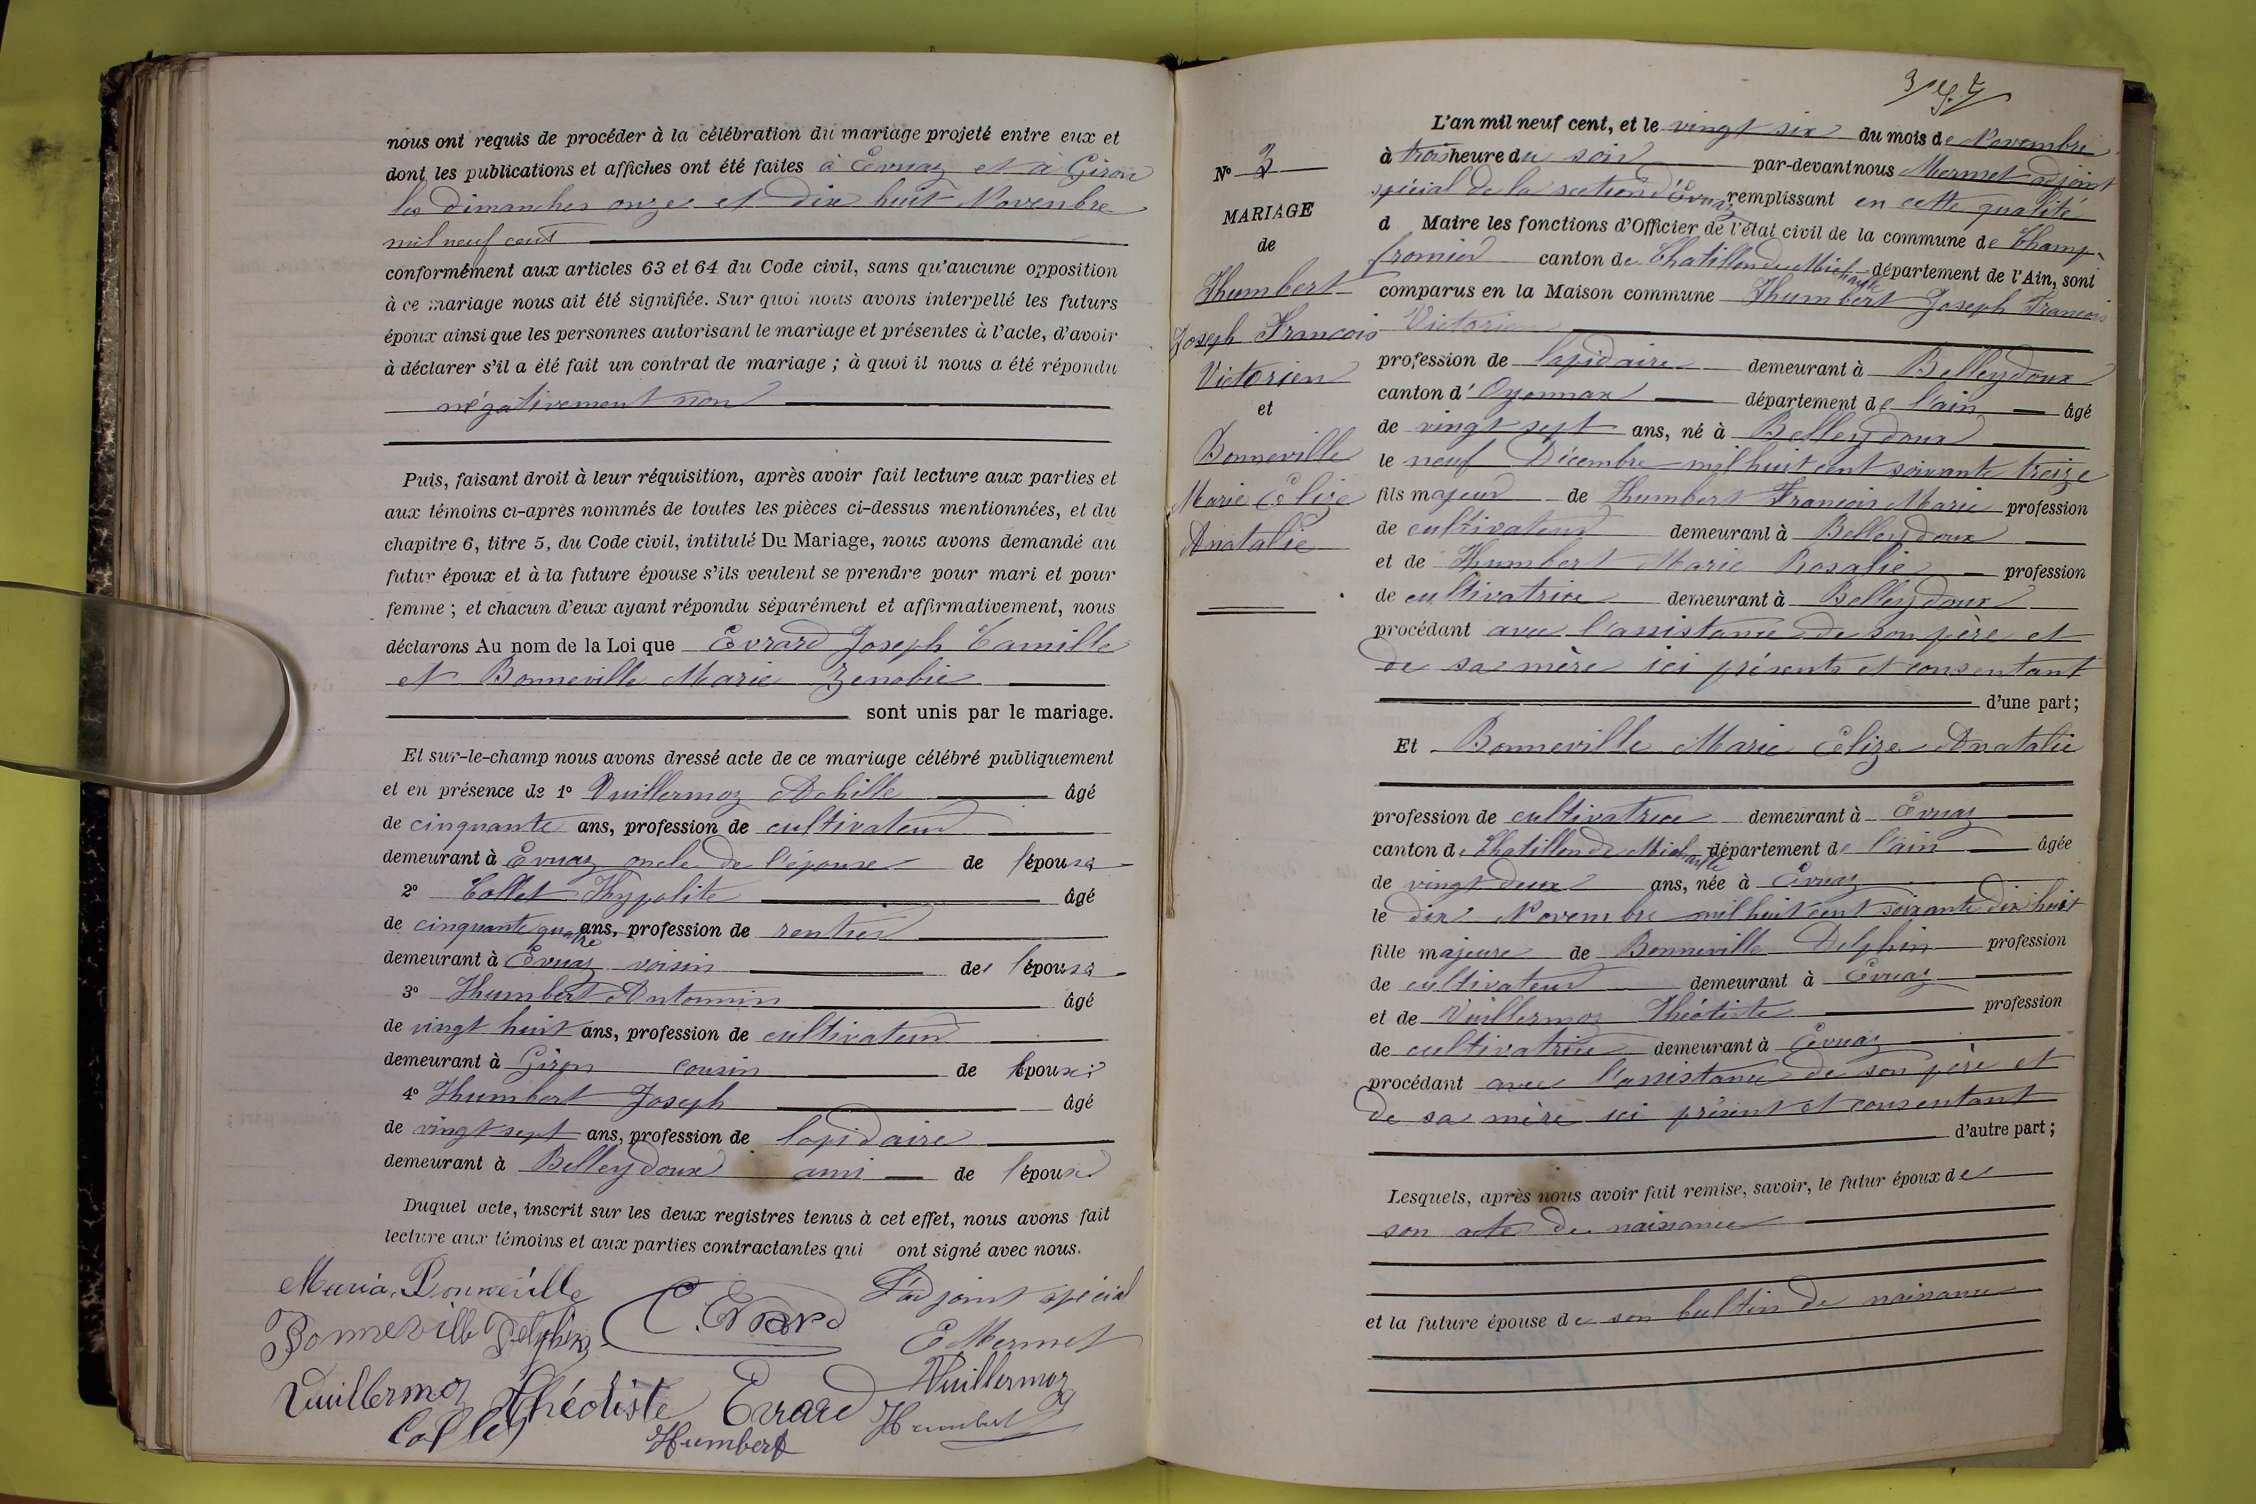 nous ont requis de procéder à la célébration du mariage projeté entre eux et
dont les publications et affiches ont été faites à Evuaz et à Giron
les dimanches onze et dix huit Novembre
mil neuf cent
conformément aux articles 63 et 64 du Code civil, sans qu'aucune opposition
à ce mariage nous ait été signifiée. Sur quoi nous avons interpellé les futurs
époux ainsi que les personnes autorisant le mariage et présentes à l'acte, d'avoir
à déclarer s'il a été fait un contrat de mariage ; à quoi il nous a été répondu
négativement non
Puis, faisant droit à leur réquisition, après avoir fait lecture aux parties et
aux témoins ci-après nommés de toutes les pièces ci-dessus mentionnées, et du
chapitre 6, titre 5, du Code civil, intitulé Du Mariage, nous avons demandé au
futur époux et à la future épouse s'ils veulent se prendre pour mari et pour
femme ; et chacun d'eux ayant répondu séparément et affirmativement, nous
déclarons Au nom de la Loi que Evrard Joseph Camille
et Bonneville Marie Zenobie
sont unis par le mariage.
Et sur-le-champ nous avons dressé acte de ce mariage célébré publiquement
et en présence de 1° Vuillermoz Achille âgé
de cinquante ans, profession de cultivateur
demeurant à Evuaz oncle de l'épouse de l'épouse
2° Collet Hypolite âgé
de cinquante quatre ans, profession de rentier
demeurant à Evuaz voisin de l'épouse
3° Humbert Antonnin âgé
de vingt huit ans, profession de cultivateur
demeurant à Giron cousin de l'époux
4° Humbert Joseph âgé
de vingt sept ans, profession de lapidaire
demeurant à Belleydoux ami de l'époux
Duquel acte, inscrit sur les deux registres tenus à cet effet, nous avons fait
lecture aux témoins et aux parties contractantes qui ont signé avec nous.
Maria Bonneville
L'adjoint spécial
Bonneville Delphin C. Evrard
E Mermet
Vuillermoz Théotiste Evrard Vuillermoz
Collet Humbert Humbert
N° 3
MARIAGE
de
Humbert
Joseph Francois
Victorien
et
Bonneville
Marie Elize
Anatalie
L'an mil neuf cent, et le vingt six du mois de Novembre
à trois heure du soir par-devant nous Mermet adjoint
spécial de la section d'Evuaz remplissant en cette qualité
d Maire les fonctions d'Officier de l'état civil de la commune de Champ-
fromier canton de Chatillon de Michaille département de l'Ain, sont
comparus en la Maison commune Humbert Joseph Francois
Victorien
profession de lapidaire demeurant à Belleydoux
canton d'Oyonnax département de l'ain âgé
de vingt sept ans, né à Belleydoux
le neuf Décembre mil huit cent soixante treize
fils majeur de Humbert Francois Marie profession
de cultivateur demeurant à Belleydoux
et de Humbert Marie Rosalie profession
de cultivatrice demeurant à Belleydoux
procédant avec l'assistance de son père et
de sa mère ici présents et consentant
d'une part ;
Et Bonneville Marie Elize Anatalie
profession de cultivatrice demeurant à Evuaz
canton de Chatillon de Michaille département de l'ain âgée
de vingt deux ans, née à Evuaz
le dix Novembre mil huit cent soixante dix huit
fille majeure de Bonneville Delphin profession
de cultivateur demeurant à Evuaz
et de Vuillermoz Théotiste profession
de cultivatrice demeurant à Evuaz
procédant avec l'assistance de son père et
de sa mère ici présent et consentant
d'autre part ;
Lesquels, après nous avoir fait remise, savoir, le futur époux de
son acte de naissance
et la future épouse de son bultin de naissance